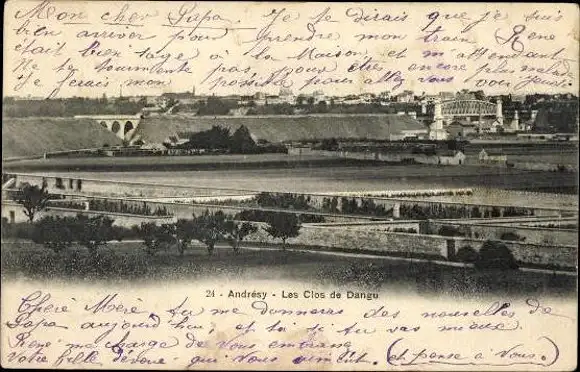 Mon cher Papa. Je te dirais que je suis
bien arriver pour prendre mon train René
était bien sage à la Maison et m'attendant
Ne te tourmente pas, pour être encore plus malade
Je ferais mon possible pour allez vous voir jeudi.
24 - Andrésy - Les Clos de Dangu
Chère Mère, tu me donneras des nouvelles de
Papa aujourd'hui et toi si tu vas mieux.
René me charge de vous embrasser
Votre fille dévouée qui vous aiment. (et pense à vous.)